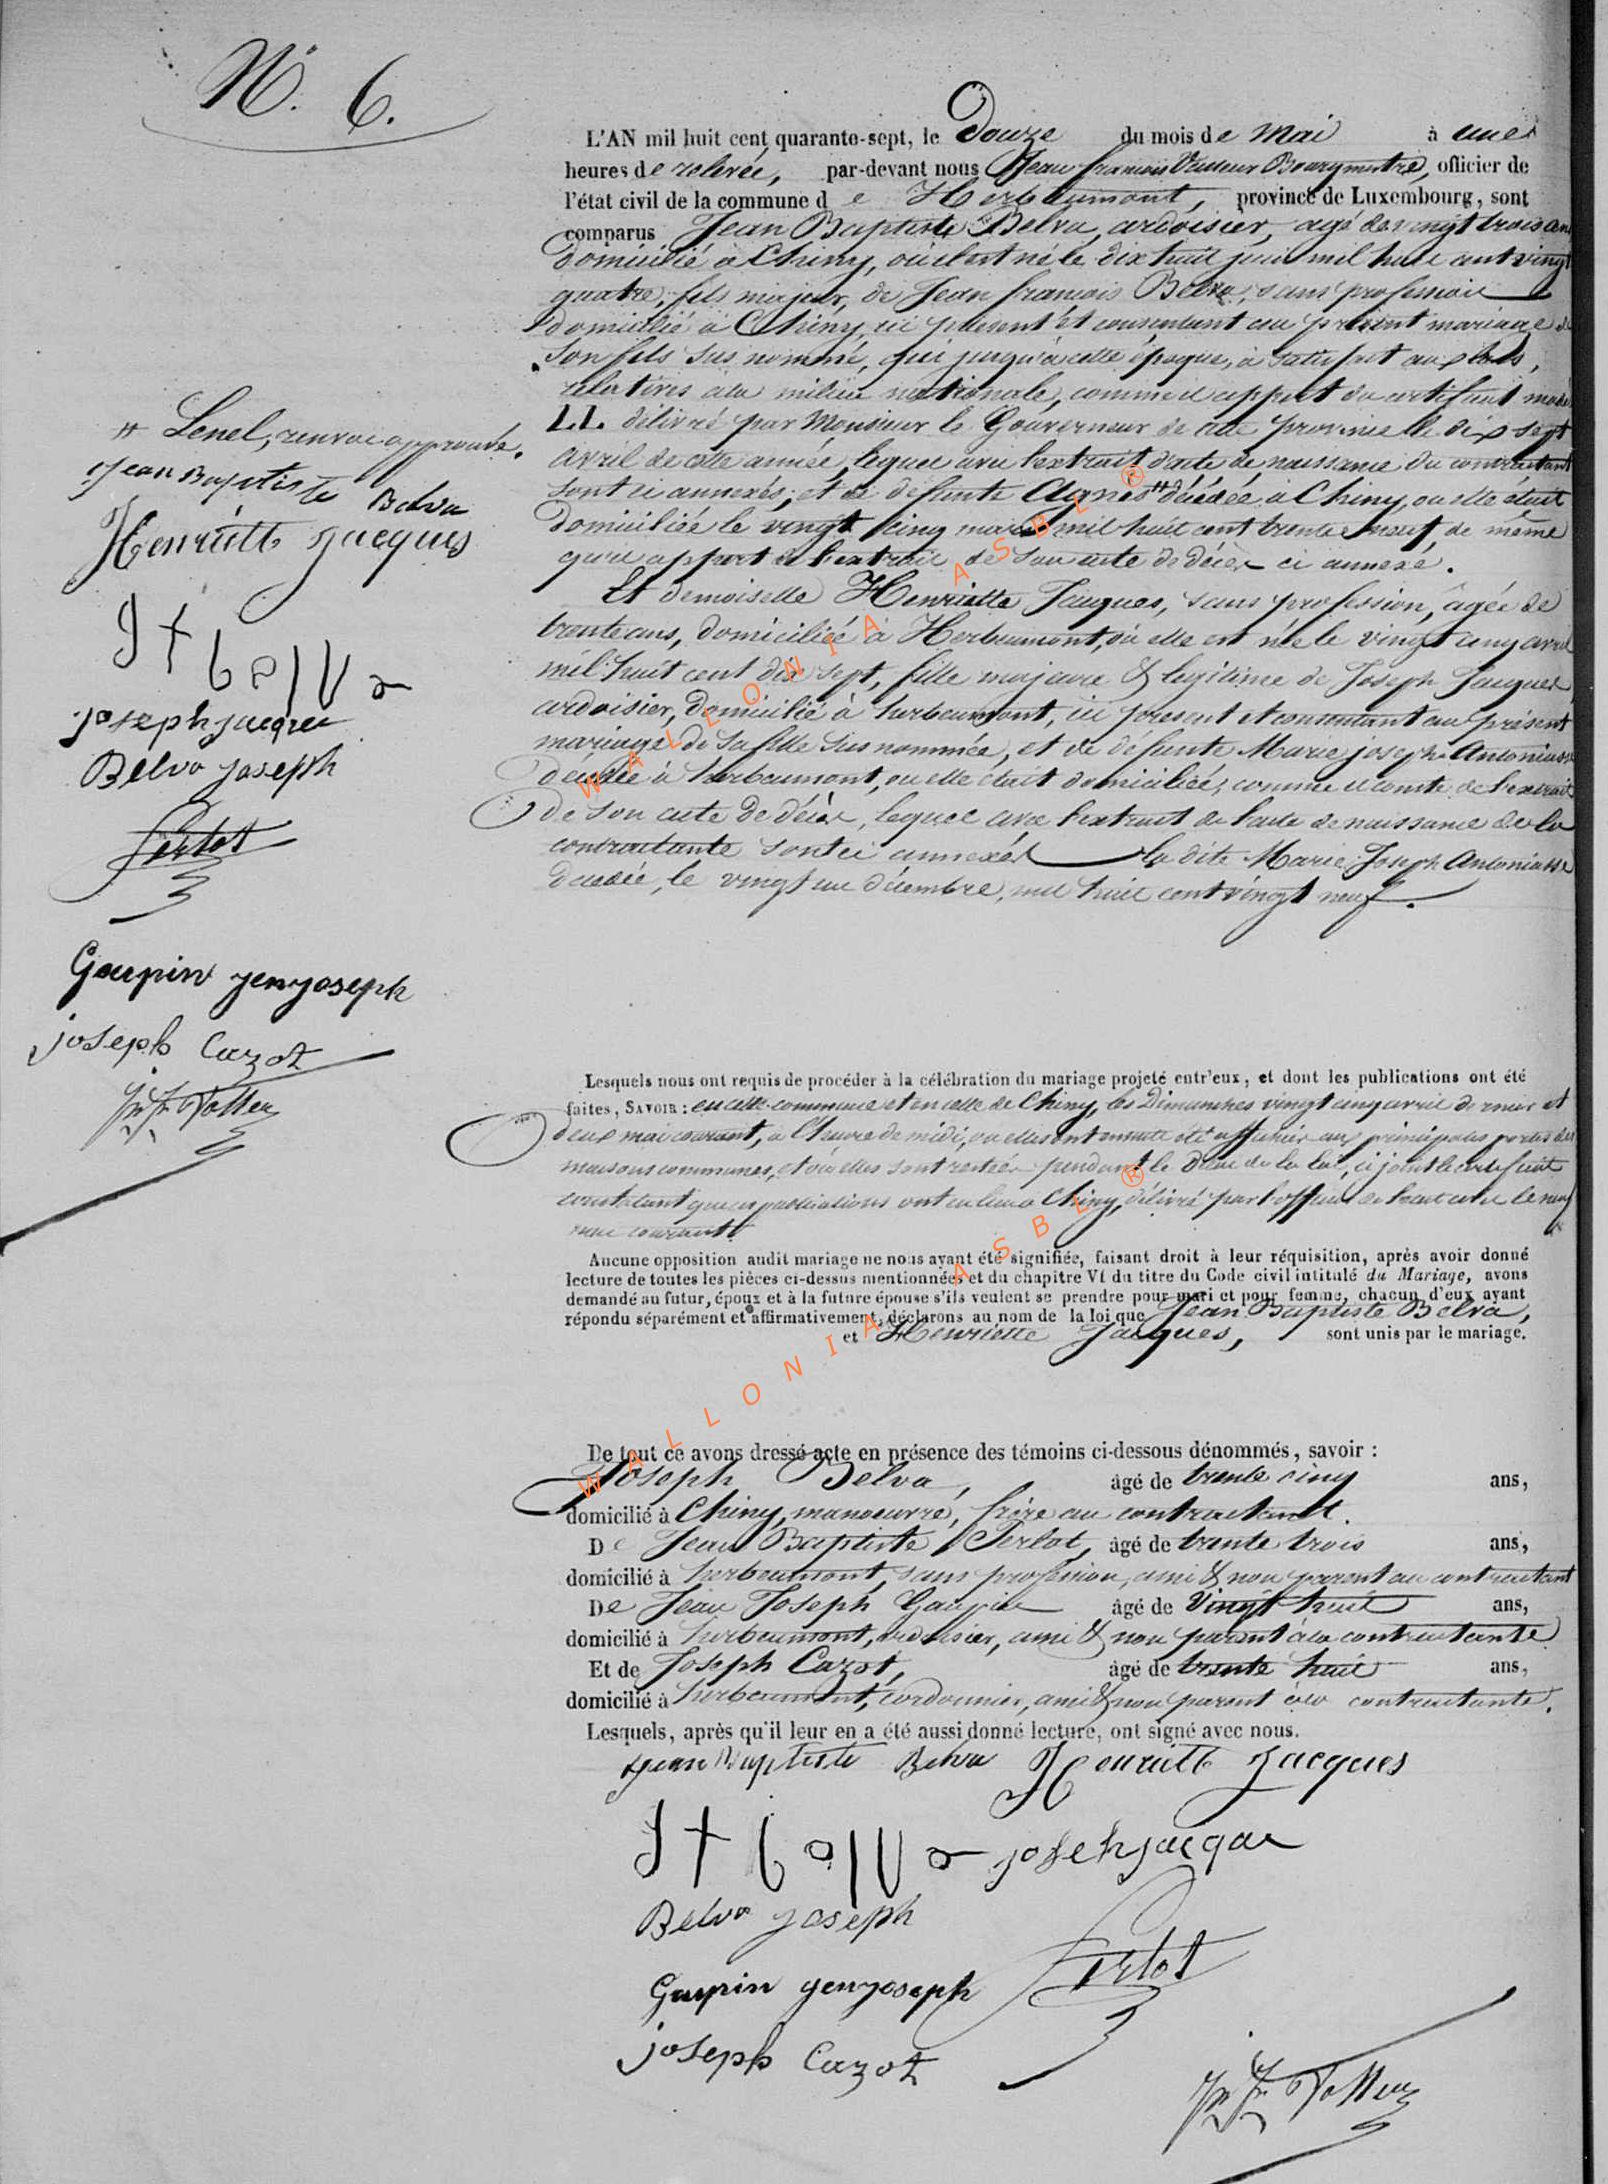 N° 6.
L'AN mil huit cent quarante-sept, le Douze du mois de Mai à une
heures de relevée, par-devant nous Jean francois Bourgmestre, officier de
l'état civil de la commune de Herbeumont, province de Luxembourg, sont
comparus Jean Baptiste Belva, ardoisier, agé de vingt trois ans
domicilié à Chiny, où il est né le dix huit juin mil huit cent vingt
quatre, fils majeur, de Jean francois Belva, sans profession
domicilié à Chiny, ici présent et consentant au présent mariage de
son fils sus nommé, qui jusqu'à cette époque, a satisfait aux lois,
relatives à la milice nationale, comme il appert du certificat modèle
LL délivré par Monsieur le Gouverneur de cette province le dix sept
avril de cette année, lequel avec l'extrait d'acte de naissance du contractant
sont ci annexés; et de défunte Agnès " décédée à Chiny, où elle était
domiciliée le vingt cinq mars mil huit cent trente neuf, de même
qu'il appert de l'extrait de son acte de décès ci annexé.
Et demoiselle Henriette Jacques, sans profession, âgée de
trente ans, domiciliée à Herbeumont, où elle est née le vingt cinq avril
mil huit cent dix sept, fille majeure & légitime de Joseph Jacques
ardoisier, domicilié à herbeumont, ici présent et consentant au présent
mariage de sa fille sus nommée, et de défunte Marie joseph Antoniasse
décédée à herbeumont, où elle était domiciliée, comme il conste de l'extrait
de son acte de décès, lequel avec l'extrait de l'acte de naissance de la
contractante sont ci annexés la dite Marie Joseph Antoniasse
décédée, le vingt un décembre, mil huit cent vingt neuf.
" Lenel, renvoi approuvé.
Jean Baptiste Belva
Henriette Jacques
J + b a l V a
joseph jacques
Belva joseph
Perlot
Goupin jenjoseph
joseph Cazot
Lesquels nous ont requis de procéder à la célébration du mariage projeté entr'eux, et dont les publications ont été
faites, SAVOIR: en cette commune et en celle de Chiny, les Dimanches vingt cinq avril dernier et
deux mai courant, à l'heure de midi, où elles ont ensuite été affichées aux principales portes des
maisons communes, et où elles sont restées pendant le délai de la loi, ci joint le certificat
constatant que ces publications ont eu lieu à Chiny, délivré par l'officier de l'état civil le neuf
mai courant.
Aucune opposition audit mariage ne nous ayant été signifiée, faisant droit à leur réquisition, après avoir donné
lecture de toutes les pièces ci-dessus mentionnées et du chapitre VI du titre du Code civil intitulé du Mariage, avons
demandé au futur, époux et à la future épouse s'ils veulent se prendre pour mari et pour femme, chacun d'eux ayant
répondu séparément et affirmativement, déclarons au nom de la loi que Jean Baptiste Belva,
et Henriette Jacques, sont unis par le mariage.
De tout ce avons dressé acte en présence des témoins ci-dessous dénommés, savoir :
Joseph Belva, âgé de trente cinq ans,
domicilié à Chiny, manoeuvre, frère au contractant.
De Jean Baptiste Perlot, âgé de trente trois ans,
domicilié à herbeumont, sans profession, ami & non parent au contractant
De Jean Joseph Goupin âgé de Vingt huit ans,
domicilié à herbeumont, ardoisier, ami & non parent à la contractante
Et de Joseph Cazot, âgé de trente huit ans,
domicilié à herbeumont, cordonnier, ami & non parent à la contractante.
Lesquels, après qu'il leur en a été aussi donné lecture, ont signé avec nous.
Jean Baptiste Belva Henriette Jacques
J + b a l V a josehjacque
Belva joseph
Perlot
Goupin jenjoseph
joseph Cazot
WALLONIA ASBL ®
WALLONIA ASBL ®